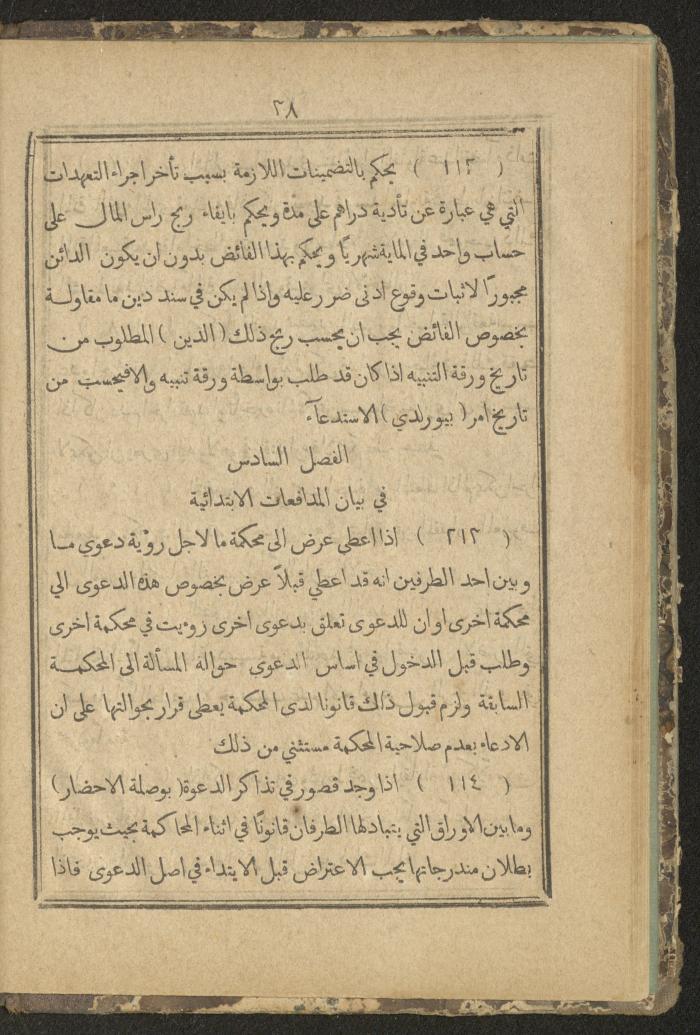 ٣٨
( ١١٢ ) يحكم بالتضمينات اللازمة بسبب تأخر اجراء التعهدات
التي هي عبارة عن تأدية دراهم على مدة ويحكم بايفاء ربح راس المال على
حساب واحد في الماية شهريًا ويحكم بهذا الفائض بدون ان يكون الدائن
مجبورًا لاثبات وقوع ادنى ضرر عليه واذا لم يكن في سند دين ما مقاولة
بخصوص الفائض يجب ان يحسب ربح ذلك ( الدين ) المطلوب من
تاريخ ورقة التنبيه اذا كان قد طلب بواسطة ورقة تنبيه والا فيحسب من
تاريخ امر ( بيورلدي ) الاستدعآء
الفصل السادس
في بيان المدافعات الابتدائية
( ٢١٢ ) اذا اعطي عرض الى محكمة ما لاجل رؤية دعوي ما
وبين احد الطرفين انه قد اعطي قبلاً عرض بخصوص هذه الدعوى الي
محكمة اخرى او ان للدعوى تعلق بدعوى اخرى زويت في محكمة اخرى
وطلب قبل الدخول في اساس الدعوى حوالة المسألة الى المحكمة
السابقة ولزم قبول ذلك قانونا لدى المحكمة يعطى قرار بحوالتها على ان
الادعاء بعدم صلاحية المحكمة مستثني من ذلك
( ١١٤ ) اذا وجد قصور في تذاكر الدعوة ( بوصلة الاحضار )
وما بين الاوراق التي يتبادلها الطرفان قانونًا في اثناء المحاكمة بحيث يوجب
بطلان مندرجاتها يجب الاعتراض قبل الابتداء في اصل الدعوى فاذا